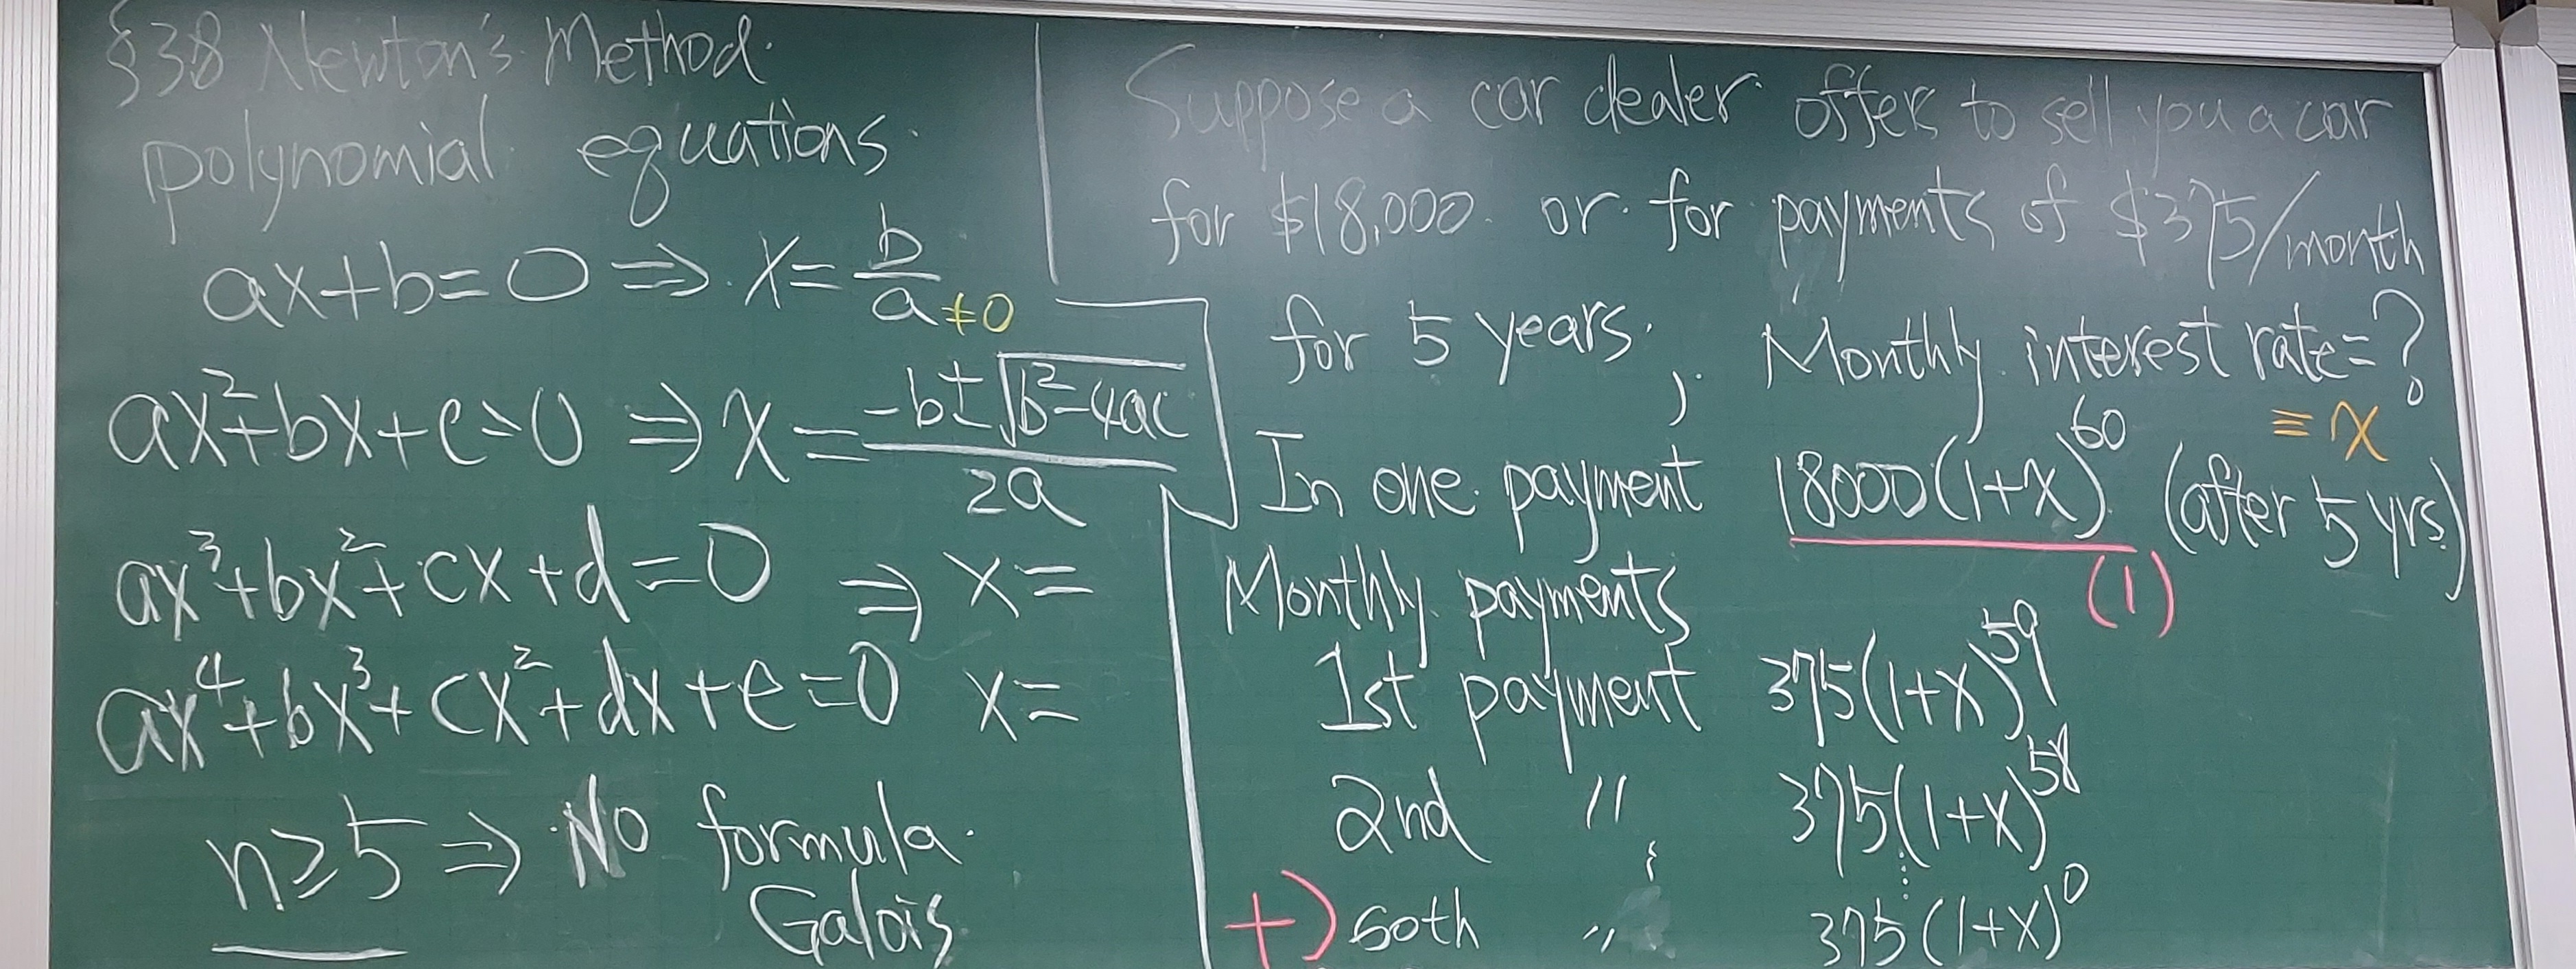 §38 Newton's Method.
polynomial equations.
ax+b=0 ⇒ x= b/a ≠0
ax²+bx+c=0 ⇒ x= (-b±√(b²-4ac))/2a
ax³+bx²+cx+d=0 ⇒ x=
ax⁴+bx³+cx²+dx+e=0 x=
n≥5 ⇒ No formula.
Galois
Suppose a car dealer offers to sell you a car
for $18,000 or for payments of $375/month
for 5 years, Monthly interest rate=?
≡ x
In one payment 18000(1+x)⁶⁰ (after 5 yrs)
(1)
Monthly payments
1st payment 375(1+x)⁵⁹
2nd 〃 375(1+x)⁵⁸
⋮ ⋮
+) 60th 〃 375(1+x)⁰